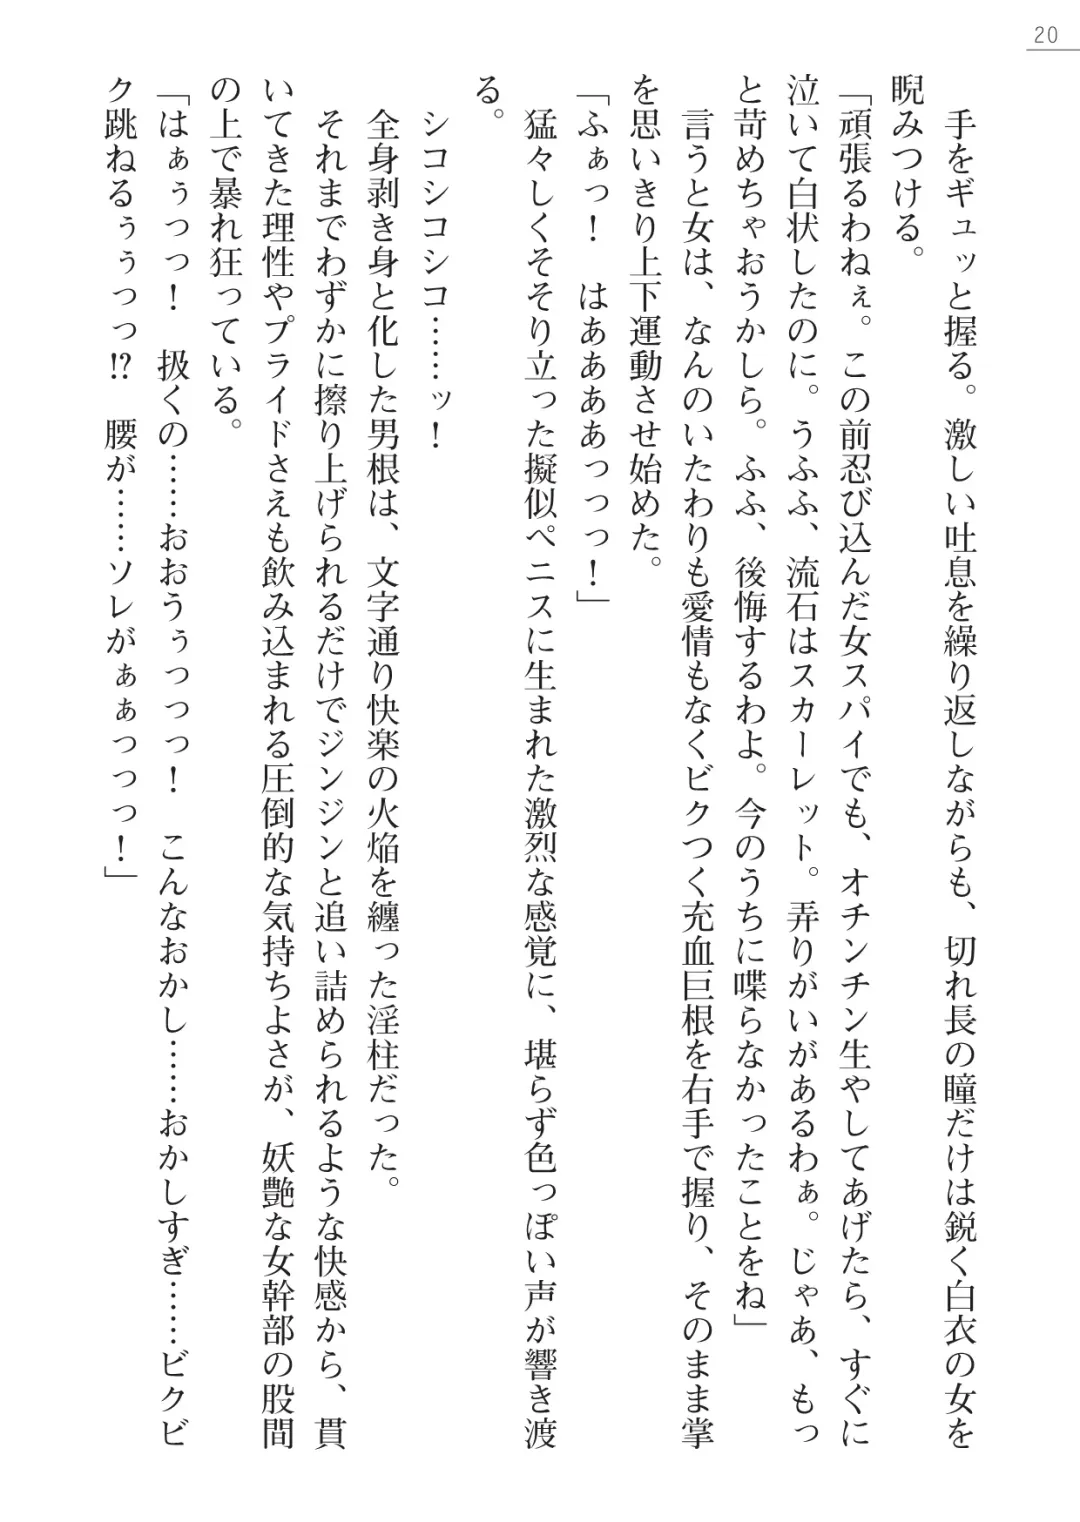 20
手をギュッと握る。激しい吐息を繰り返しながらも、切れ長の瞳だけは鋭く白衣の女を
睨みつける。
「頑張るわねぇ。この前忍び込んだ女スパイでも、オチンチン生やしてあげたら、すぐに
泣いて白状したのに。うふふ、流石はスカーレット。弄りがいがあるわぁ。じゃあ、もっ
と苛めちゃおうかしら。ふふ、後悔するわよ。今のうちに喋らなかったことをね」
言うと女は、なんのいたわりも愛情もなくビクつく充血巨根を右手で握り、そのまま掌
を思いきり上下運動させ始めた。
「ふぁっ！　はああああっっっ！」
猛々しくそそり立った擬似ペニスに生まれた激烈な感覚に、堪らず色っぽい声が響き渡
る。
シコシコシコ……ッ！
全身剥き身と化した男根は、文字通り快楽の火焔を纏った淫柱だった。
それまでわずかに擦り上げられるだけでジンジンと追い詰められるような快感から、貫
いてきた理性やプライドさえも飲み込まれる圧倒的な気持ちよさが、妖艶な女幹部の股間
の上で暴れ狂っている。
「はぁぅっっ！　扱くの……おおうぅっっっ！　こんなおかし……おかしすぎ……ビクビ
ク跳ねるぅぅっっ!?　腰が……ソレがぁぁっっっ！」